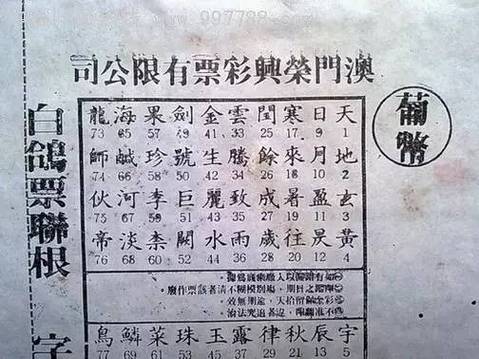 澳門榮興彩票有限公司
葡幣
天日寒閏雲金劍果海龍
1 9 17 25 33 41 49 57 65 73
地月來餘騰生號珍鹹師
2 10 18 26 34 42 50 58 66 74
玄盈暑成致麗巨李河伙
3 11 19 27 35 43 51 59 67 75
黃昃往歲雨水闕柰淡帝
4 12 20 28 36 44 52 60 68 76
之日期,場別模糊不清者該票作廢。
彩金保留拾天,逾期無效。
宇辰秋律露玉珠菜鱗鳥
5 13 21 29 37 45 53 61 69 77
白鴿票聯根 字